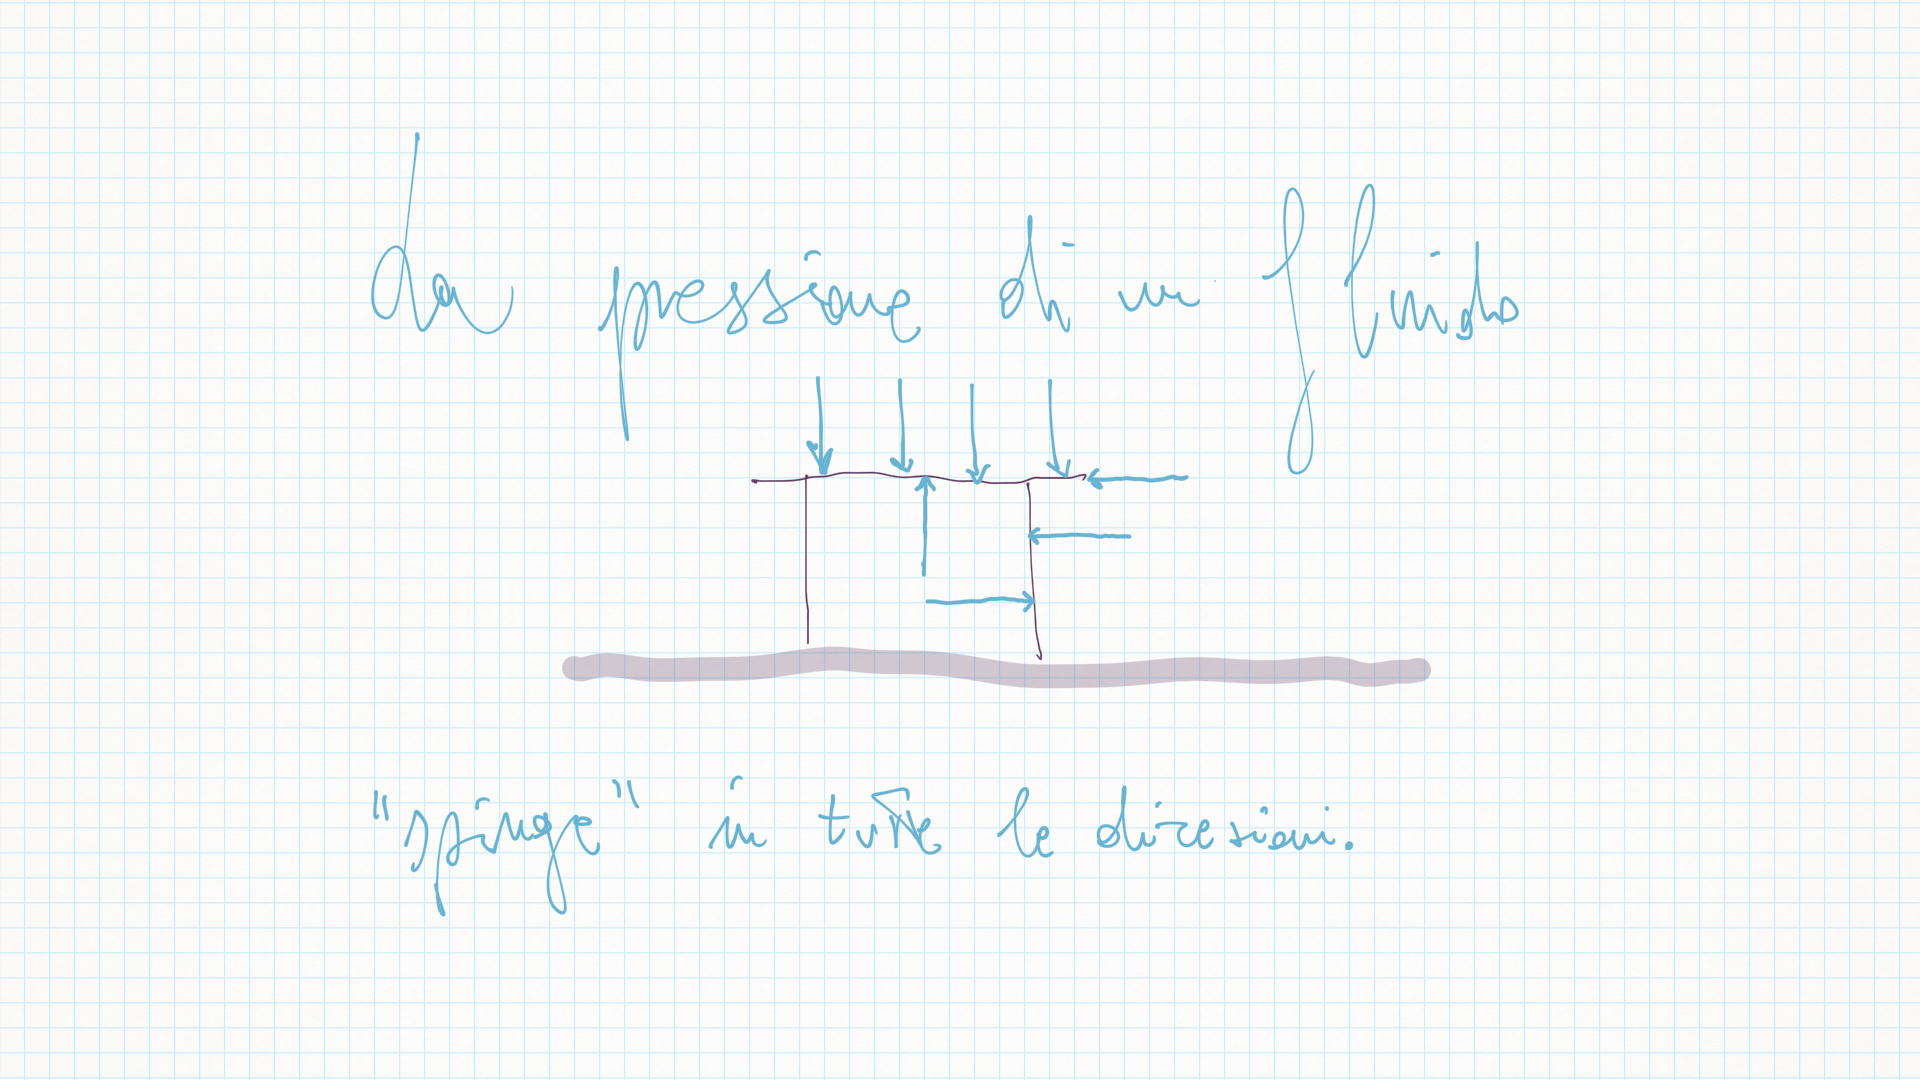 La pressione di un fluido
"spinge" in tutte le direzioni.